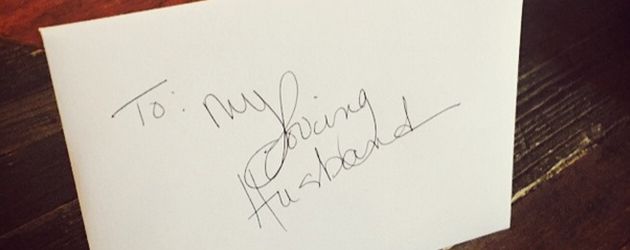 To: My
Loving
Husband